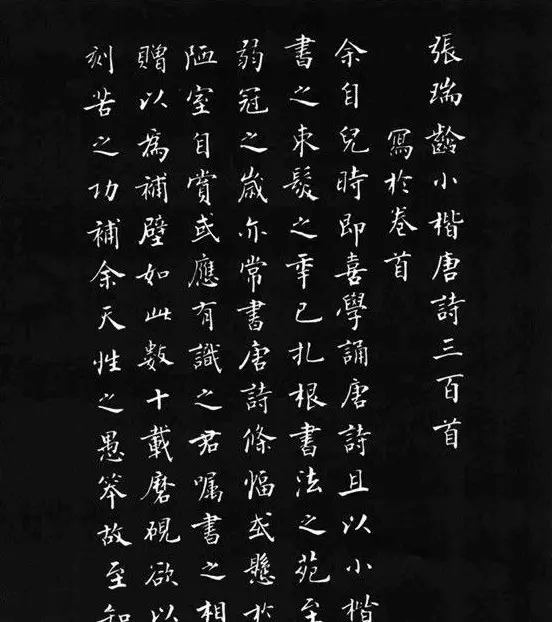 張瑞齡小楷唐詩三百首
寫於卷首
余自兒時即喜學誦唐詩且以小楷
書之束髮之年已扎根書法之苑至
弱冠之歲亦常書唐詩條幅或懸於
陋室自賞或應有識之君囑書之相
贈以為補壁如此數十載磨硯欲以
刻苦之功補余天性之愚笨故至知